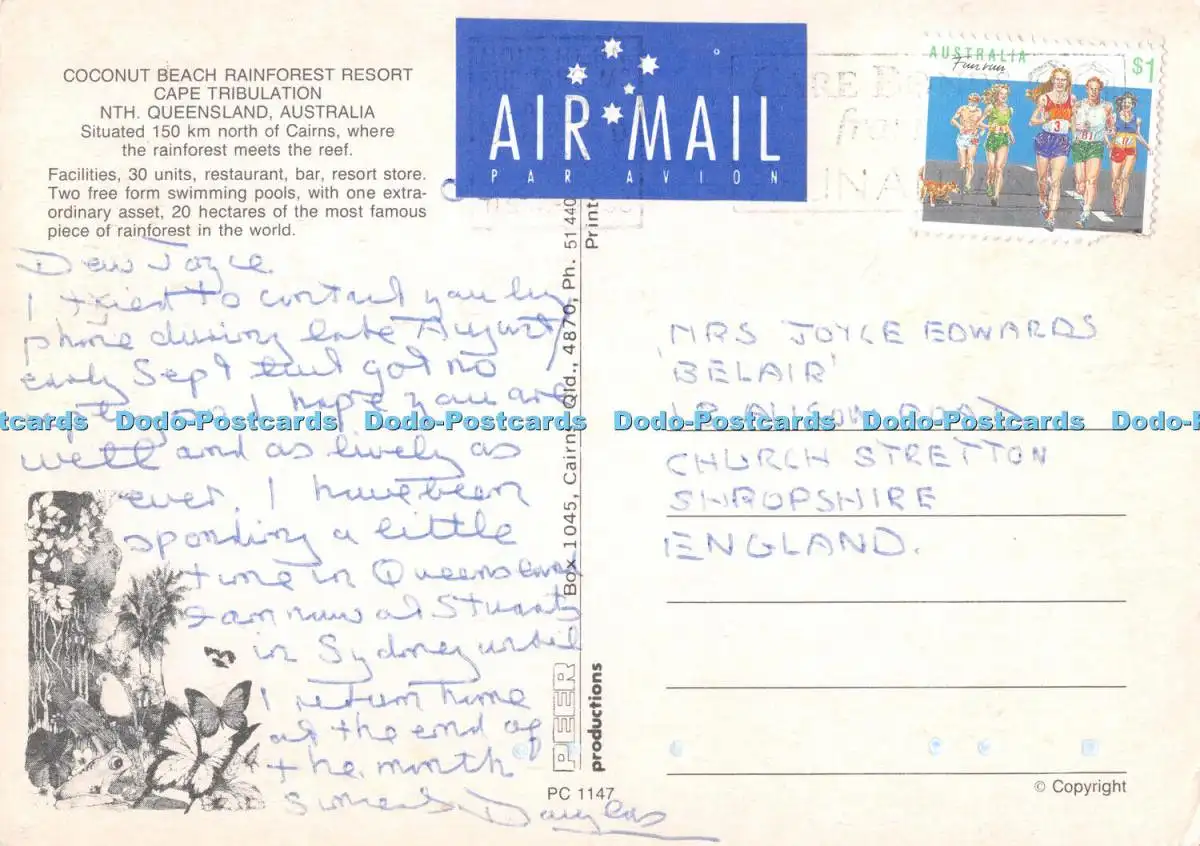 COCONUT BEACH RAINFOREST RESORT
CAPE TRIBULATION
NTH. QUEENSLAND, AUSTRALIA
Situated 150 km north of Cairns, where
the rainforest meets the reef.
Facilities, 30 units, restaurant, bar, resort store.
Two free form swimming pools, with one extra-
ordinary asset, 20 hectares of the most famous
piece of rainforest in the world.
Dear Joyce
I tried to contact you by
phone during late August/
early Sept but got no
so I hope you are
well and as lively as
ever. I have been
spending a little
time in Queensland
& am now at Stuart's
in Sydney until
I return home
at the end of
the month
Douglas
AIR MAIL
PAR AVION
AUSTRALIA
Fun run
$1
3
MRS JOYCE EDWARDS
'BELAIR'
ROAD
CHURCH STRETTON
SHROPSHIRE
ENGLAND.
Dodo-Postcards Dodo-Postcards Dodo-Postcards Dodo-Postcards Dodo-Postcards
Printe
Box 1045, Cairns, Qld., 4870, Ph. 51 440
PEER
productions
PC 1147
© Copyright